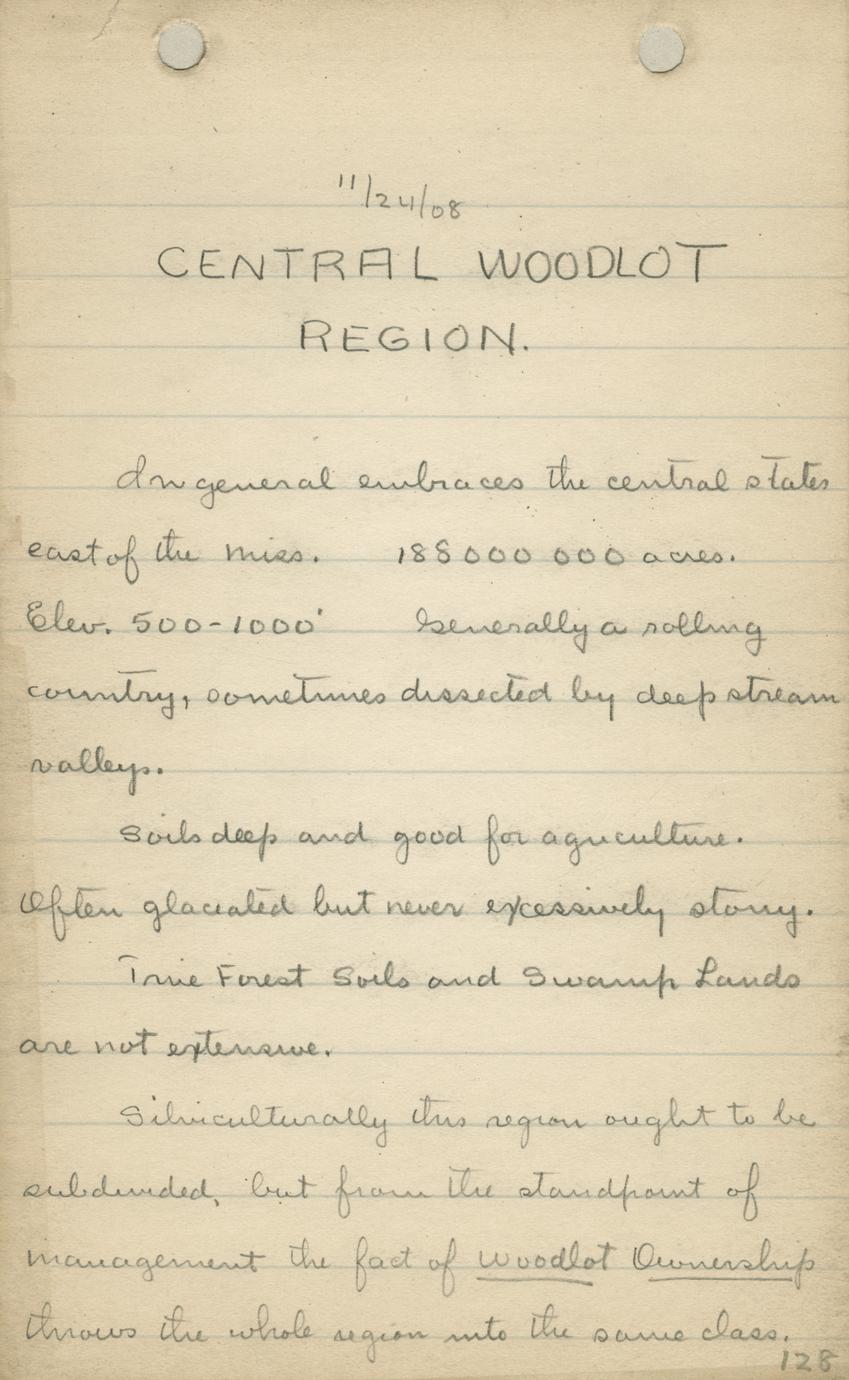 11/24/08
CENTRAL WOODLOT
REGION.
In general embraces the central states
east of the Miss. 188000 000 acres.
Elev. 500-1000' Generally a rolling
country, sometimes dissected by deep stream
valleys.
Soils deep and good for agriculture.
Often glaciated but never excessively stony.
True Forest Soils and Swamp Lands
are not extensive.
Silviculturally this region ought to be
subdivided, but from the standpoint of
management the fact of Woodlot Ownership
throws the whole region into the same class.
128